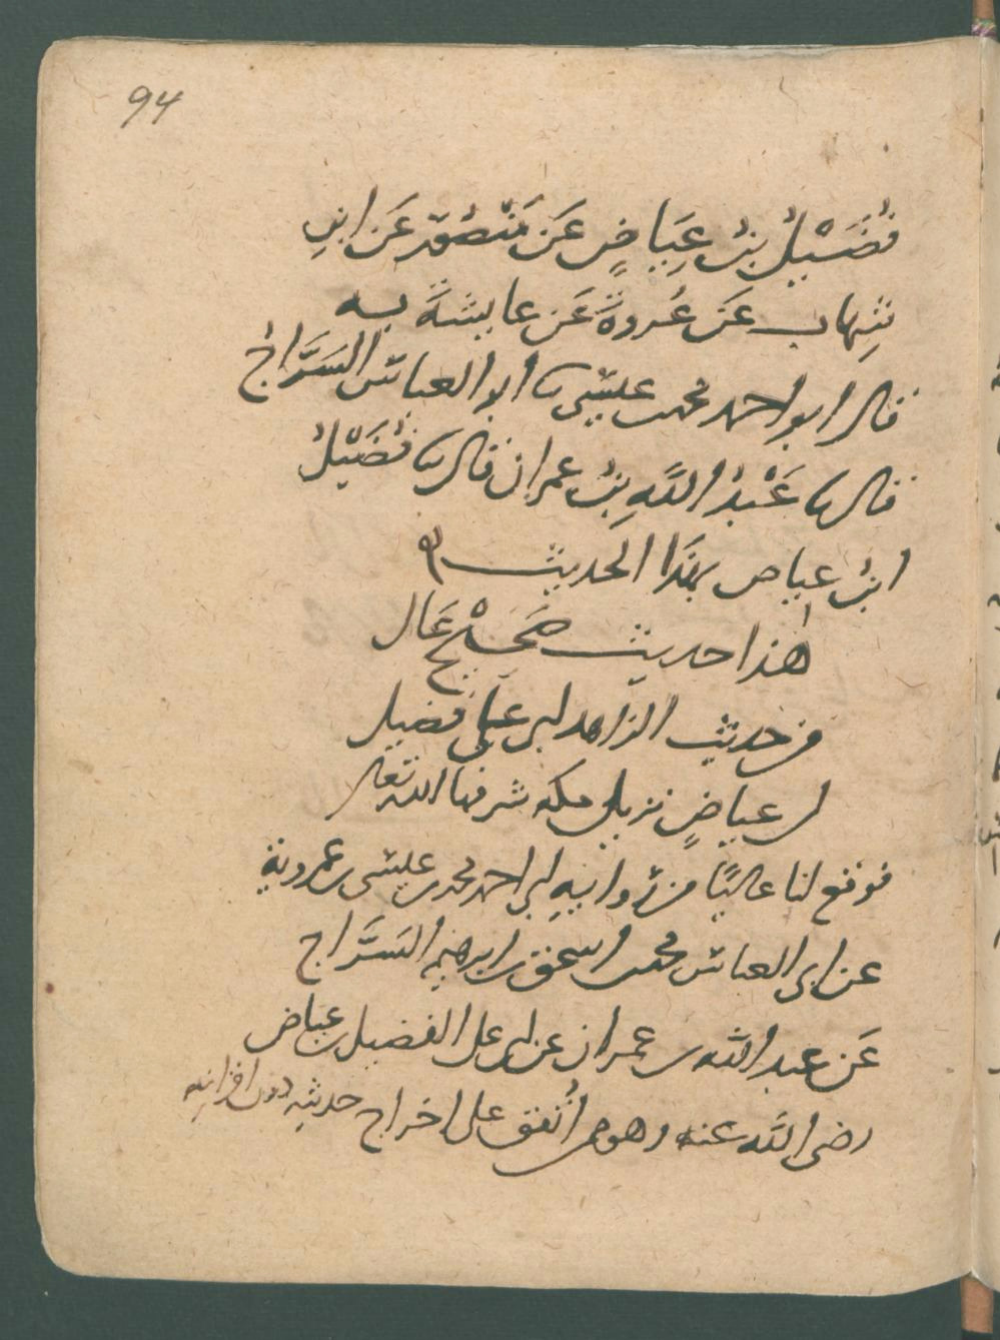 94
فُضَيْلُ بنُ عِيَاضٍ عَن مَنْصُور عَن ابنِ
شِهاب عَن عُروةَ عَن عايشةَ به
قال ابو احمد محمد بن عيسى نا ابو العباس السَّرَّاجُ
قال نا عَبْدُ اللهِ بنُ عمران قال نا فُضَيْلُ
ابنُ عياض بهَذا الحديث
هذا حديث صَحِيْح عَال
من حديث الزاهد ابي علي فضيل
بن عياضٍ نزيل مكه شرفها الله تعالى
فوقع لنا عاليًا من روايةِ ابي احمد محمد بن عيسى بن عمرويهِ
عن ابي العباس محمد بن اسحق بن ابرهيم السَّرَّاج
عَن عبد الله بن عمران عن ابي علي الفضيل بن عياض
رضي الله عنه وهو ممن اُتفق على اخراج حديثه دون اقرانِه